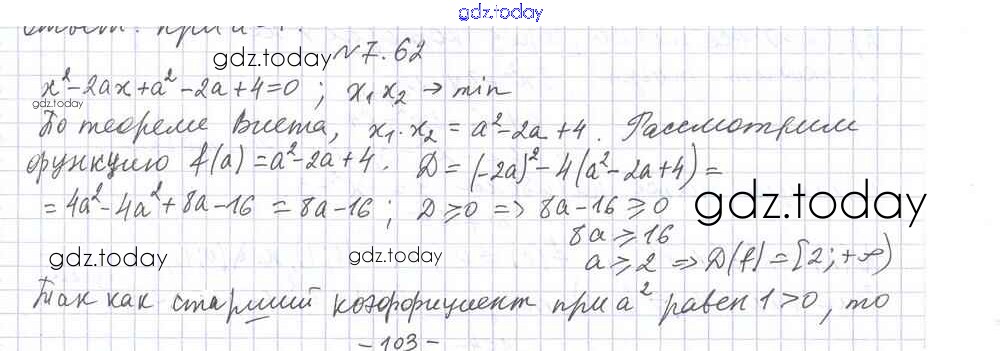 gdz.today
Ответ: при
gdz.today № 7.62
x² - 2ax + a² - 2a + 4 = 0 ; x₁ x₂ → min
gdz.today
По теореме Виета, x₁ · x₂ = a² - 2a + 4. Рассмотрим
функцию f(a) = a² - 2a + 4. D = (-2a)² - 4(a² - 2a + 4) =
= 4a² - 4a² + 8a - 16 = 8a - 16 ; D ⩾ 0 => 8a - 16 ⩾ 0
gdz.today
8a ⩾ 16
gdz.today gdz.today a ⩾ 2 => D(f) = [2; +∞)
Так как старший коэффициент при a² равен 1 > 0, то
- 103 -